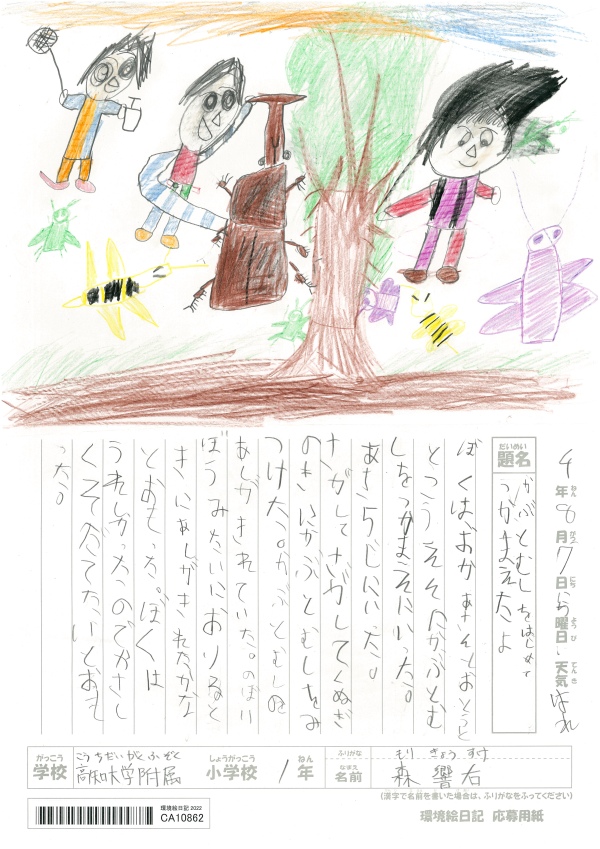 4年8月7日にち曜日、天気はれ
ねん がつ にち ようび てんき
だいめい
題名
かぶとむしをはじめて
つかまえたよ
ぼくは、おかあさんとおとうと
とこうえんにかぶとむ
しをつかまえにいった。
あさ5じにいった。
さがしてさがしてくぬぎ
のきにかぶとむしをみ
つけた。かぶとむしの
あしがきれていた。のぼり
ぼうみたいにおりると
きにあしがきれたかな
とおもった。ぼくは
うれしかったのでやさし
くそだてたいとおも
った。
がっこう こうちだいがくふぞく しょうがっこう ねん
学校 高知大学附属 小学校 1年
ふりがな もり きょうすけ
なまえ
名前 森 響右
(漢字で名前を書いた場合は、ふりがなをふってください)
環境絵日記 2022
CA10862
環境絵日記 応募用紙